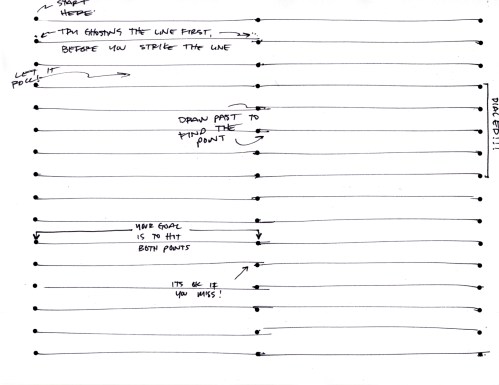 START
HERE
TRY GHOSTING THE LINE FIRST,
BEFORE YOU STRIKE THE LINE
LET IT
ROLL!
DRAW PAST TO
FIND THE
POINT
DIALED!!!!
YOUR GOAL
IS TO HIT
BOTH POINTS
ITS OK IF
YOU MISS!